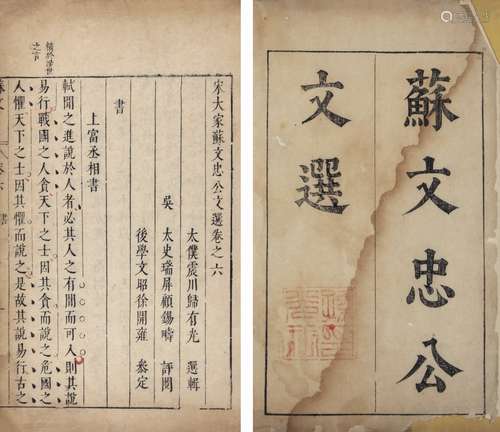 蘇文忠公
文選
宋大家蘇文忠公文選卷之六
太僕震川歸有光 選輯
吳 太史瑞屏顧錫疇 評閱
後學文昭徐開雍 參定
書
上富丞相書
軾聞之進說於人者必其人之有間而可入則其說
易行戰國之人貪天下之士因其貪而說之危國之
人懼天下之士因其懼而說之是故其說易行古之
之言